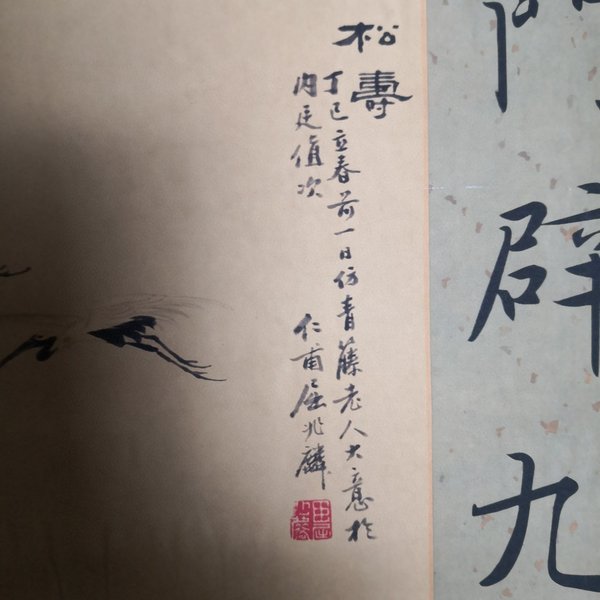 門辟九
松壽
丁巳立春前一日仿青藤老人大意於
内廷值次
仁甫屈兆麟